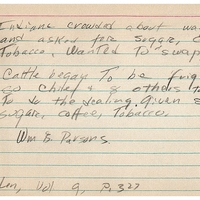 Indians crowded about wa
and asked for sugar, C
Tobacco. Wanted To swap
Cattle began To be frig
so Chief & 8 others To
To do the dealing. Given s
sugar, coffee, Tobacco.
Wm B. Parsons.
Vol 9, P. 327